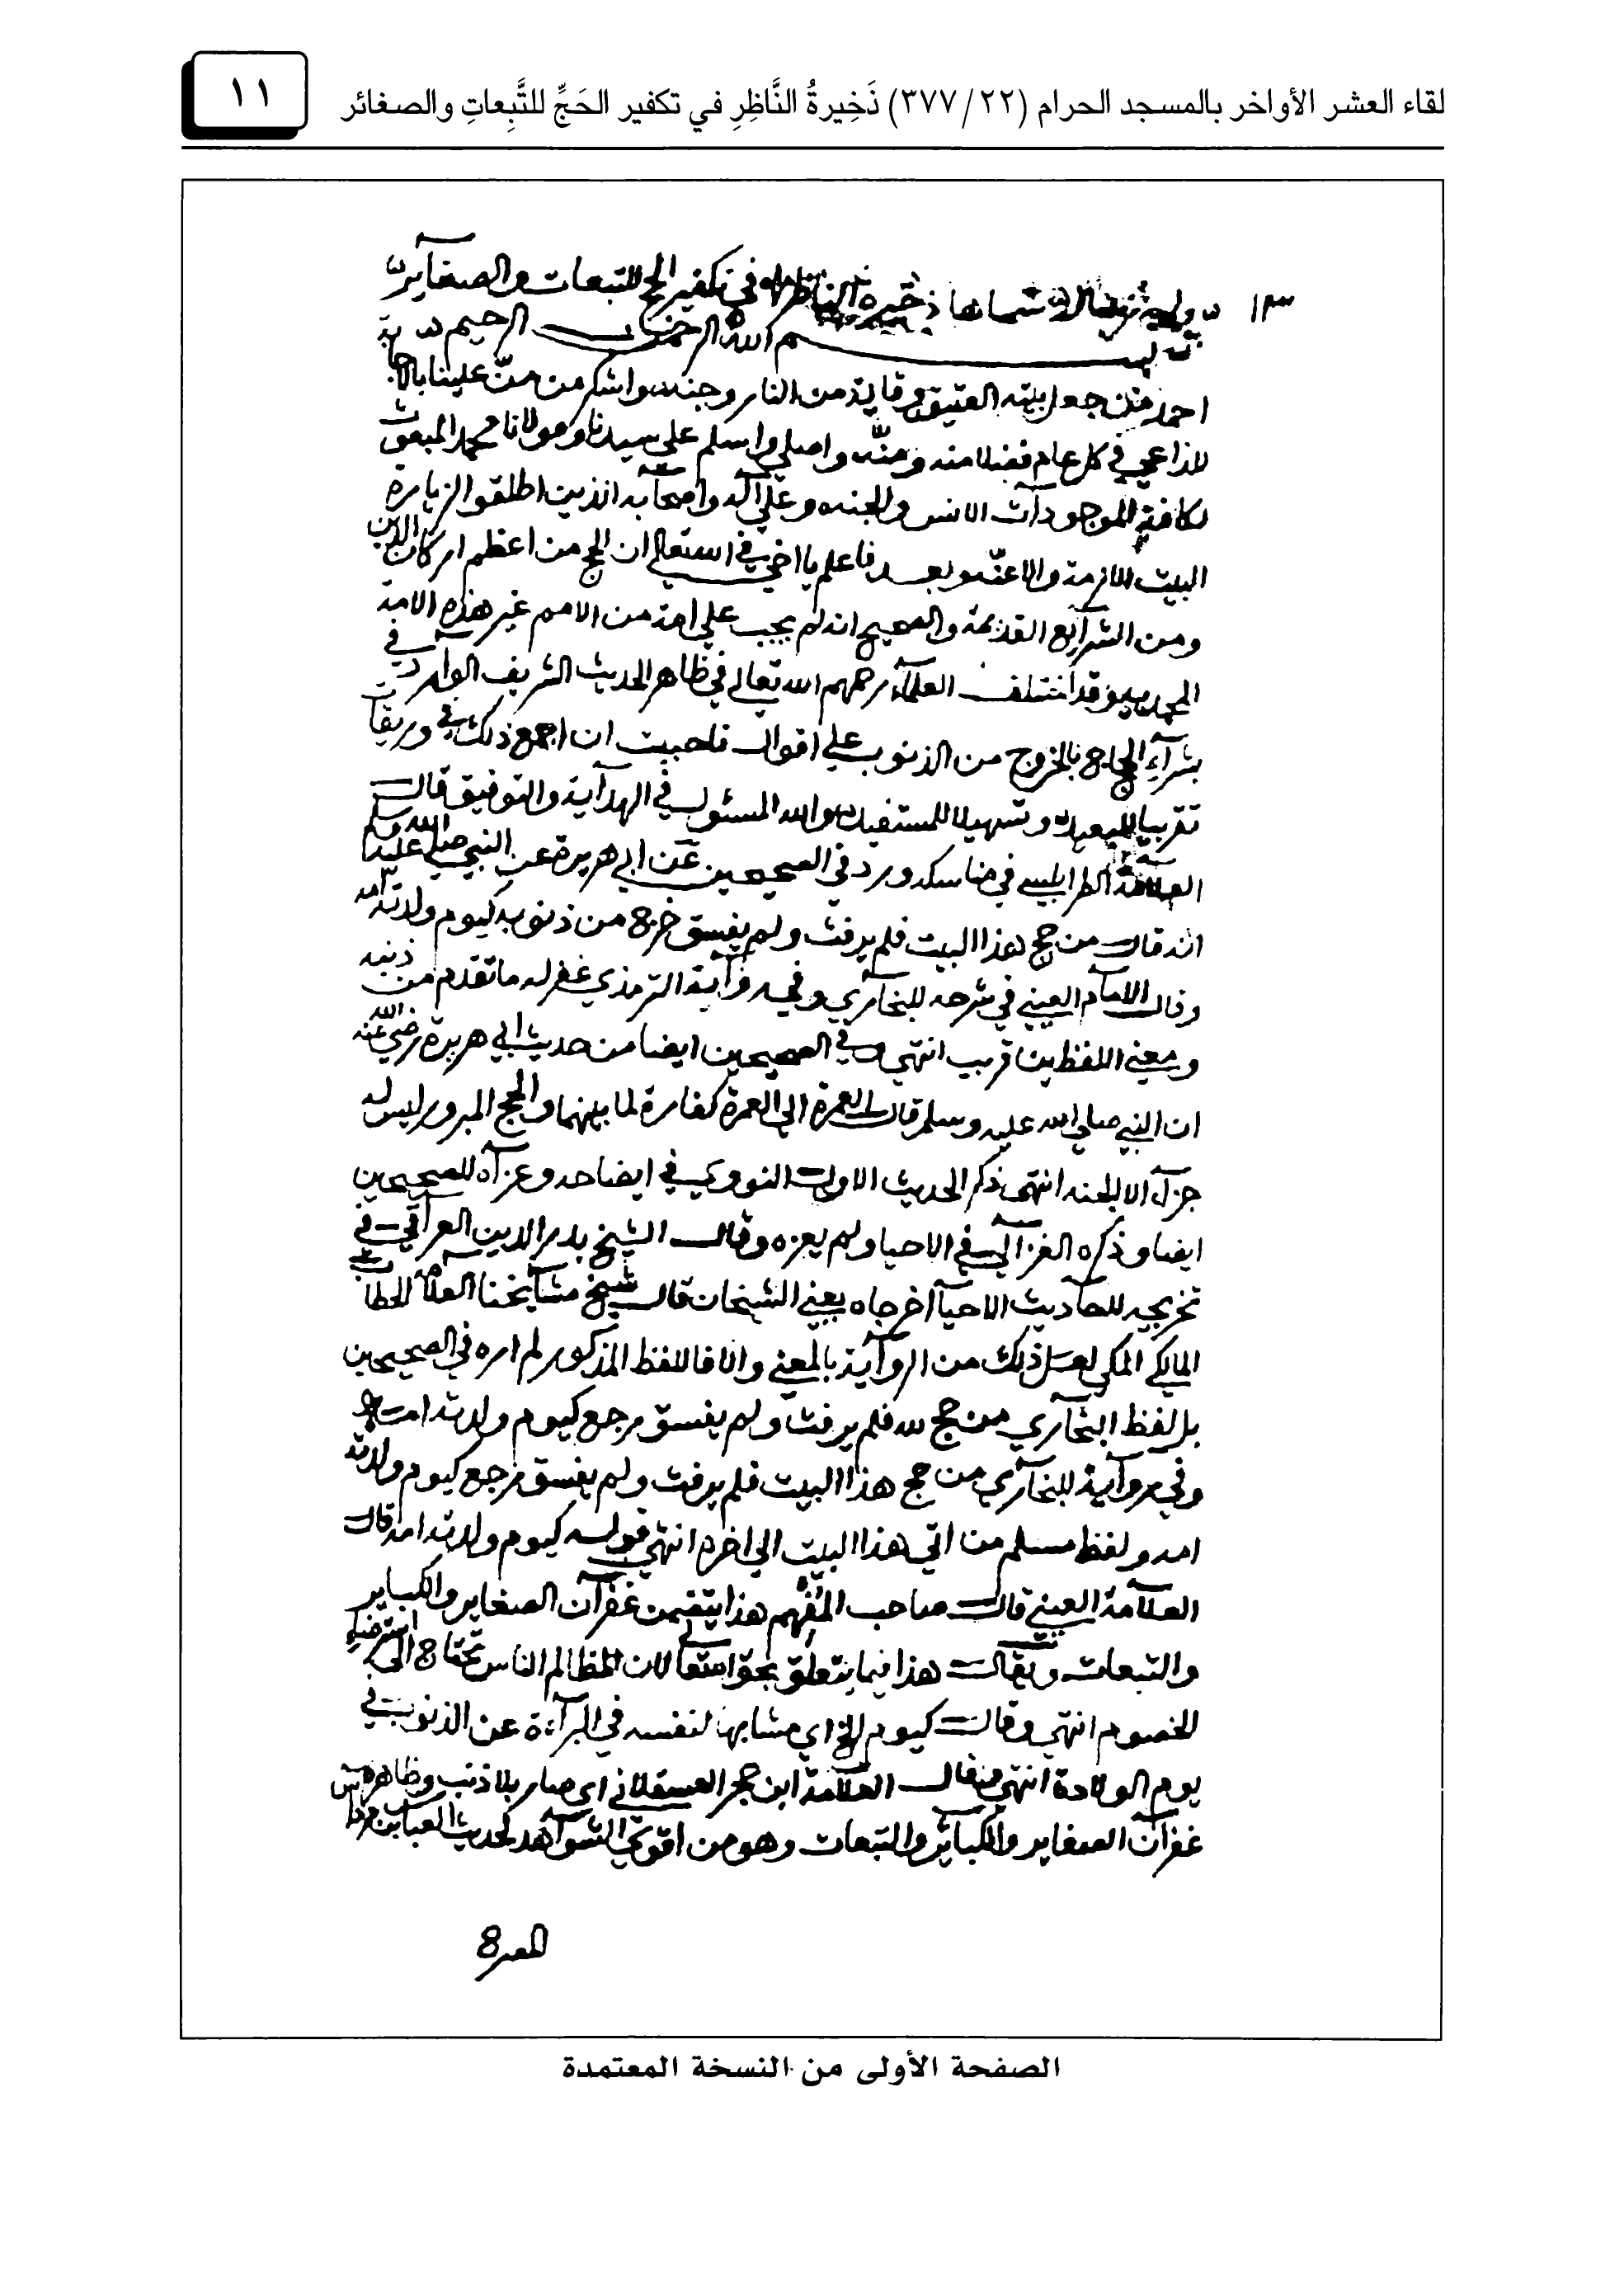 لقاء العشر الأواخر بالمسجد الحرام (٣٧٧/٢٢) ذَخِيرةُ النَّاظِرِ في تكفير الحَجِّ للتَّبِعاتِ والصغائر
١١
١٣
رسالة سماها ذخيرة الناظر في تكفير الحج للتبعات والصغآير
بسم الله الرحمن الرحيم
احمد من جعل بيته العتيق وقاية من النار وجنه واشكر من منّ علينا بالاجابة
للداعي في كل عام فضلا منه ومنّه واصلي واسلم على سيدنا ومولانا محمد المبعوث
لكافة الموجودآت الانس والجنه وعلى آله واصحآبه الذين اطلقوا لزيارة
البيت الازمة والاعنّه وبعد فاعلم يا اخي في الله تعالى ان الحج من اعظم اركان الدين
ومن الشرآيع القديمة والصحيح انه لم يجب على امة من الامم غير هذه الامة
المحمديه وقد اختلف العلمآء رحمهم الله تعالى في ظاهر الحديث الشريف الوارد في
بشرآء الحاج بالخروج من الذنوب على اقوال فاحببت ان اجمع ذلك في وريقآت
تقريبا للبعيد وتسهيلا للمستفيد والله المسئول في الهدآية والتوفيق قال
العلآمة الطرابلسي في مناسكه ورد في الصحيحين عن ابي هريرة عن النبي صلى الله عليه وسلم
انه قال من حج هذا البيت فلم يرفث ولم يفسق خرج من ذنوبه كيوم ولدته امه
وقال الامآم العيني في شرحه للبخآري وفي روآية الترمذي غفر له ما تقدم من ذنبه
ومعنى اللفظين قريب انتهى وفي الصحيحين ايضا من حديث ابي هريرة رضي الله عنه
ان النبي صلى الله عليه وسلم قال العمرة الى العمرة كفارة لما بينهما والحج المبرور ليس له
جزآ الا الجنه انتهى ذكر الحديث الاول النووي في ايضاحه وعزآه للصحيحين
ايضا وذكره الغزآلي في الاحيا ولم يعزه وقال الشيخ بدر الدين العرآقي في
تخريجه لاحآديث الاحيآ اخرجاه يعني الشيخان قال شيخ مشآيخنا العلآمة الحطاب
المالكي المكي لعل ذلك من الروآية بالمعنى والا فاللفظ المذكور لم اره في الصحيحين
بل لفظ البخآري من حج لله فلم يرفث ولم يفسق رجع كيوم ولدته امه
وفي روآية للبخآري من حج هذا البيت فلم يرفث ولم يفسق رجع كيوم ولدته
امه ولفظ مسلم من اتى هذا البيت الى اخره انتهى قوله كيوم ولدته امه قال
العلآمة العيني قال صاحب المُفْهِم هذا يتضمن غفرآن الصغاير والكباير
والتبعات ويقال هذا فيما يتعلق بحق الله تعالى لان مظالم الناس تحتاج الى استرضاء
الخصوم انتهى وقال كيوم الخ اي مشابها لنفسه في البرآءة عن الذنوب في
يوم الولادة انتهى وقال العلآمة ابن حجر العسقلاني اي صار بلا ذنب وظاهره
غفرآن الصغاير والكبآئر والتبعات وهو من اقوى الشوآهد لحديث العباس بن مرداس
المصرح
الصفحة الأولى من النسخة المعتمدة